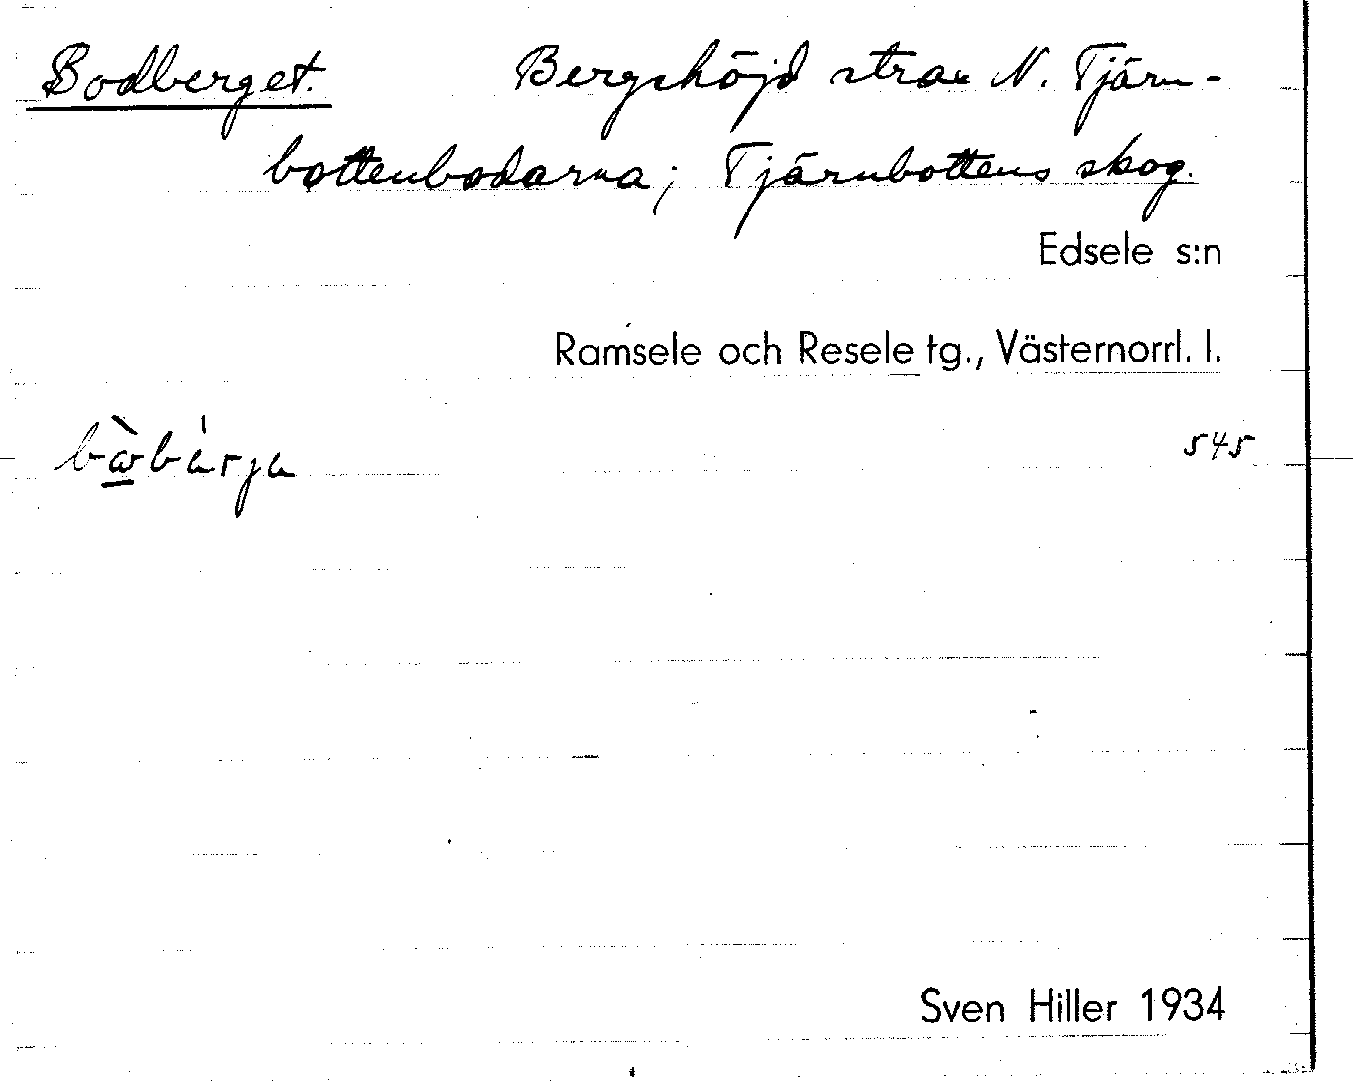 Bodberget. Bergshöjd strax N. Tjärn-
bottenbodarna; Tjärnbottens skog.
Edsele s:n
Ramsele och Resele tg., Västernorrl. l.
545
Sven Hiller 1934